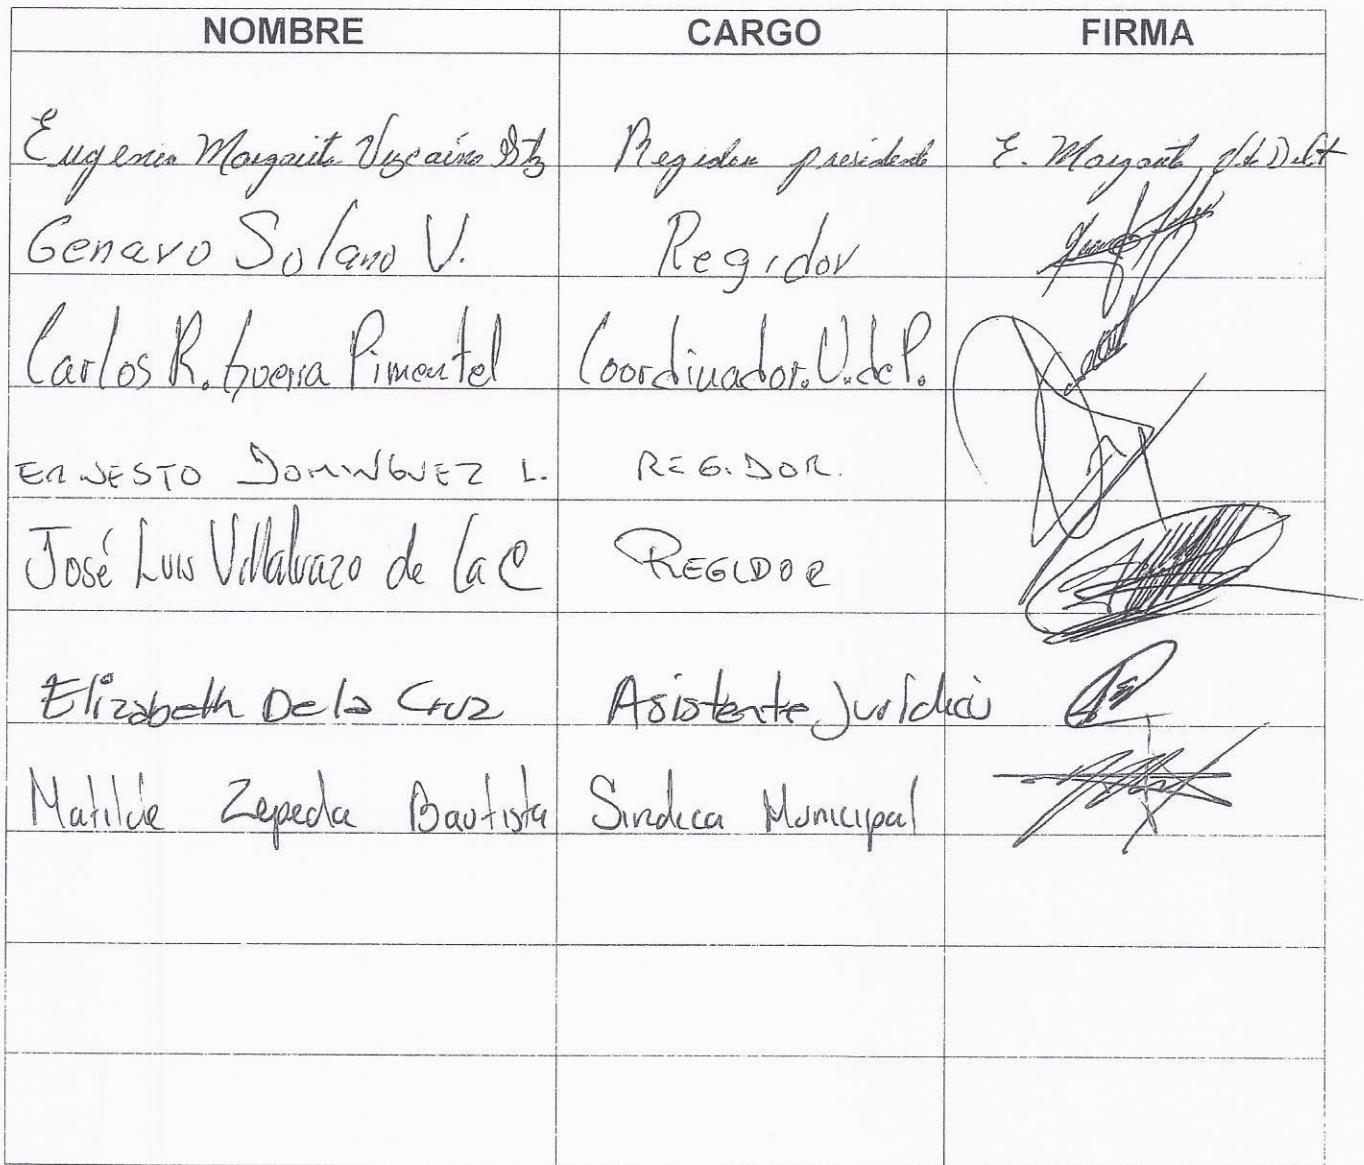 NOMBRE CARGO FIRMA
Eugenia Margarita Vizcaíno Regidora presidente E. Margarita
Genaro Solano V. Regidor
Carlos R. Guerra Pimentel Coordinador. U. de P.
ERNESTO DOMINGUEZ L. REGIDOR.
José Luis Villalvazo de la C REGIDOR
Elizabeth De la Cruz Asistente Jurídico
Matilde Zepeda Bautista Sindica Municipal